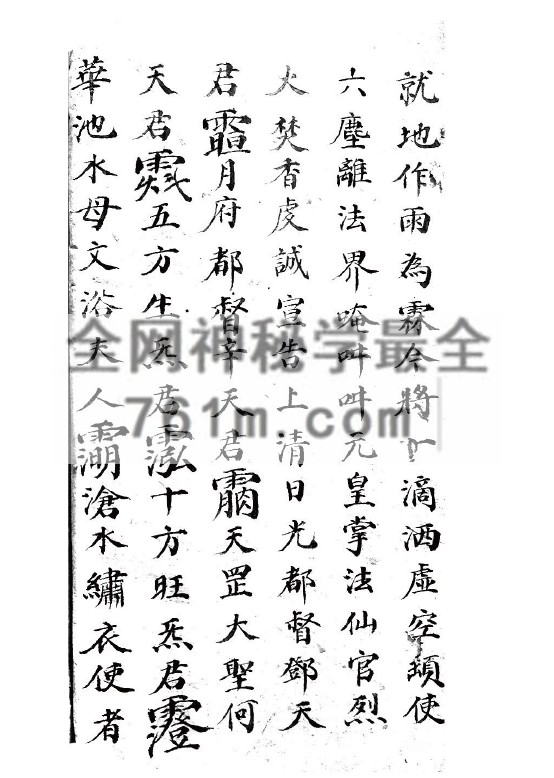 就地作雨為霖今將一滴洒虛空頓使
六塵離法界唵吽吽元皇掌法仙官烈
火焚香虔誠宣告上清日光都督鄧天
君月府都督辛天君天罡大聖何
天君五方生炁君十方旺炁君
華池水母文浴夫人滄水繡衣使者
全网神秘学最全
761m.com